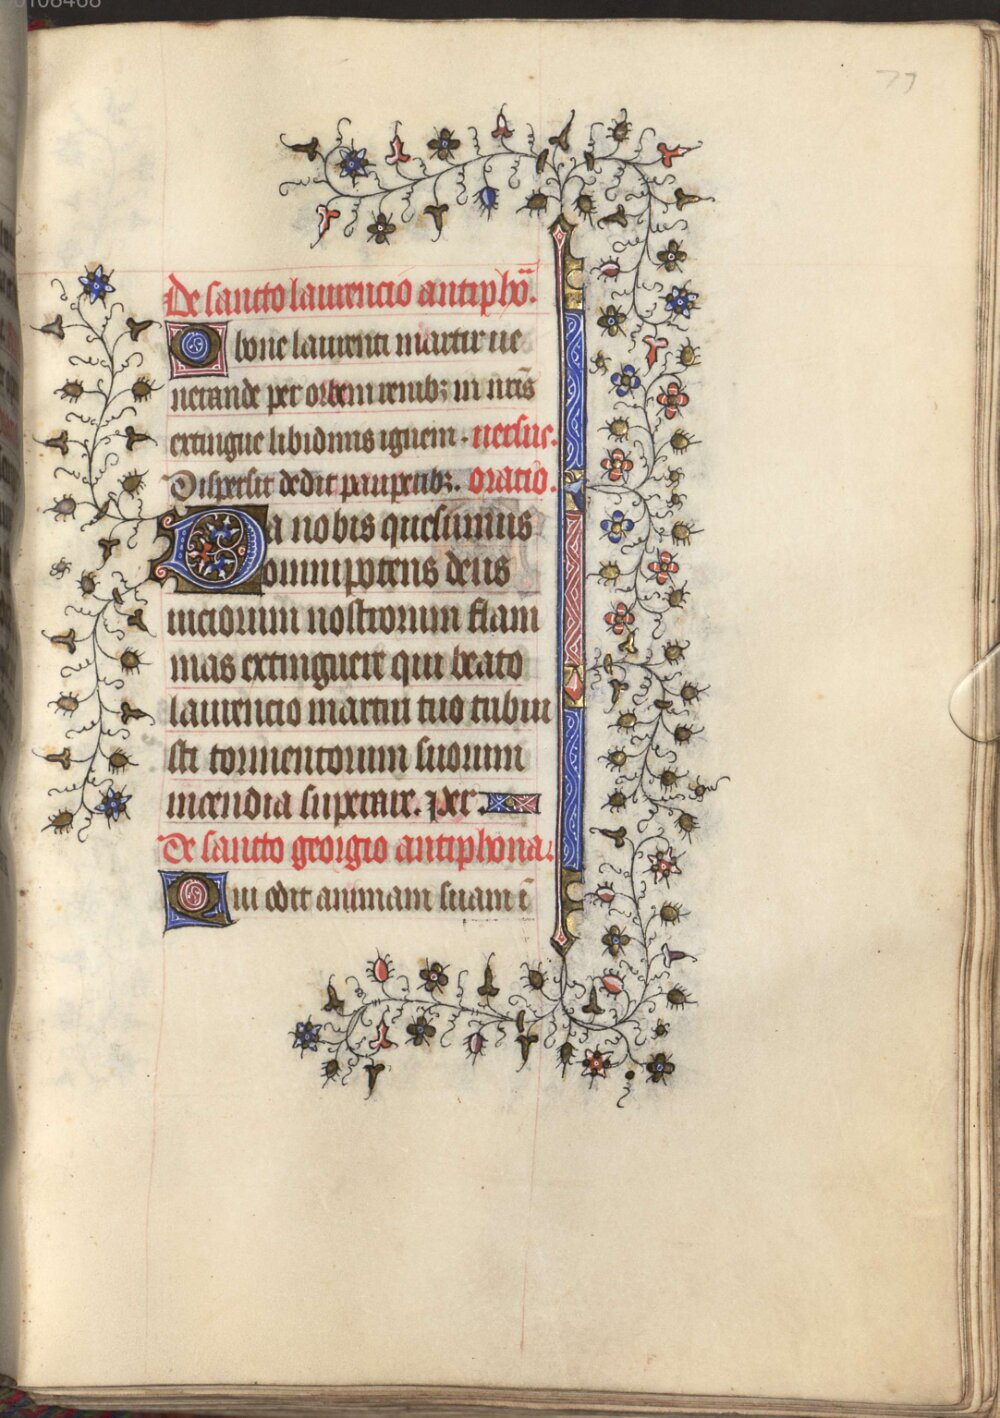 De sancto laurencio antipho͞.
O bone laurenti martir ue
nerande per orbem renibꝫ in nr̄is
extingue libidinis ignem. uersus.
Dispersit dedit pauperibꝫ. oratio.
Da nobis quesumus
omnipotens deus
uiciorum nostrorum flam
mas extinguere qui beato
laurencio martiri tuo tribui
sti tormentorum suorum
incendia superare. per.
De sancto georgio antiphona.
Qui odit animam suam ī